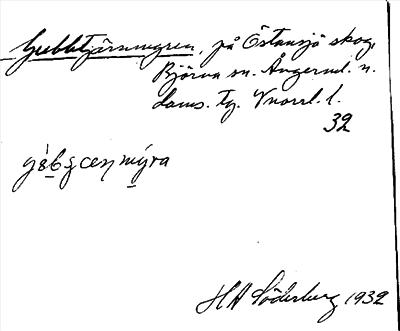 Gubbtjärnmyren, på Östansjö skog,
Björna sn. Ångerml. n.
doms. tg. Vnorrl. l.
32
HA Söderberg 1932